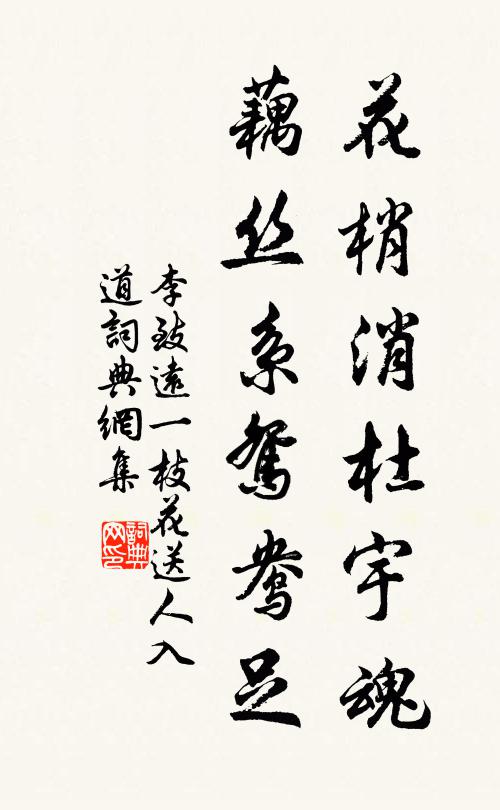 花梢消杜宇魂
藕丝系鸳鸯足
李致遠一枝花送人入
道詞典網集
詞典
网印